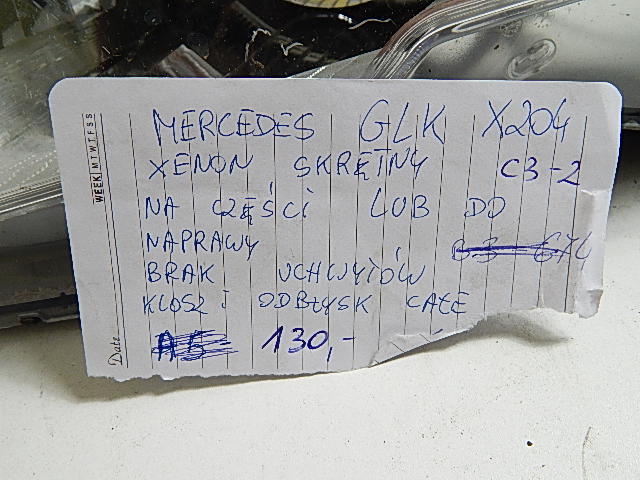 MERCEDES GLK X204
XENON SKRĘTNY C3-2
NA CZĘŚCI LUB DO
NAPRAWY
BRAK UCHWYTÓW
KLOSZ i ODBŁYSK CAŁE
A5 130,-
WEEK M T W T F S S
Date